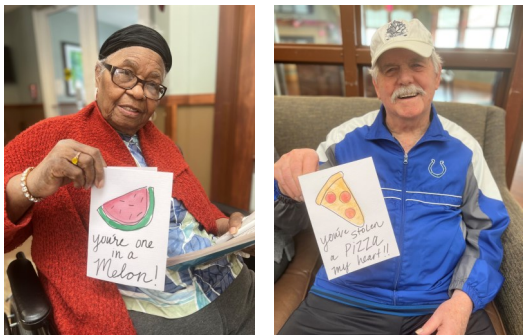 you're one
in a
Melon!
you've stolen
a PIZZA
my heart!!